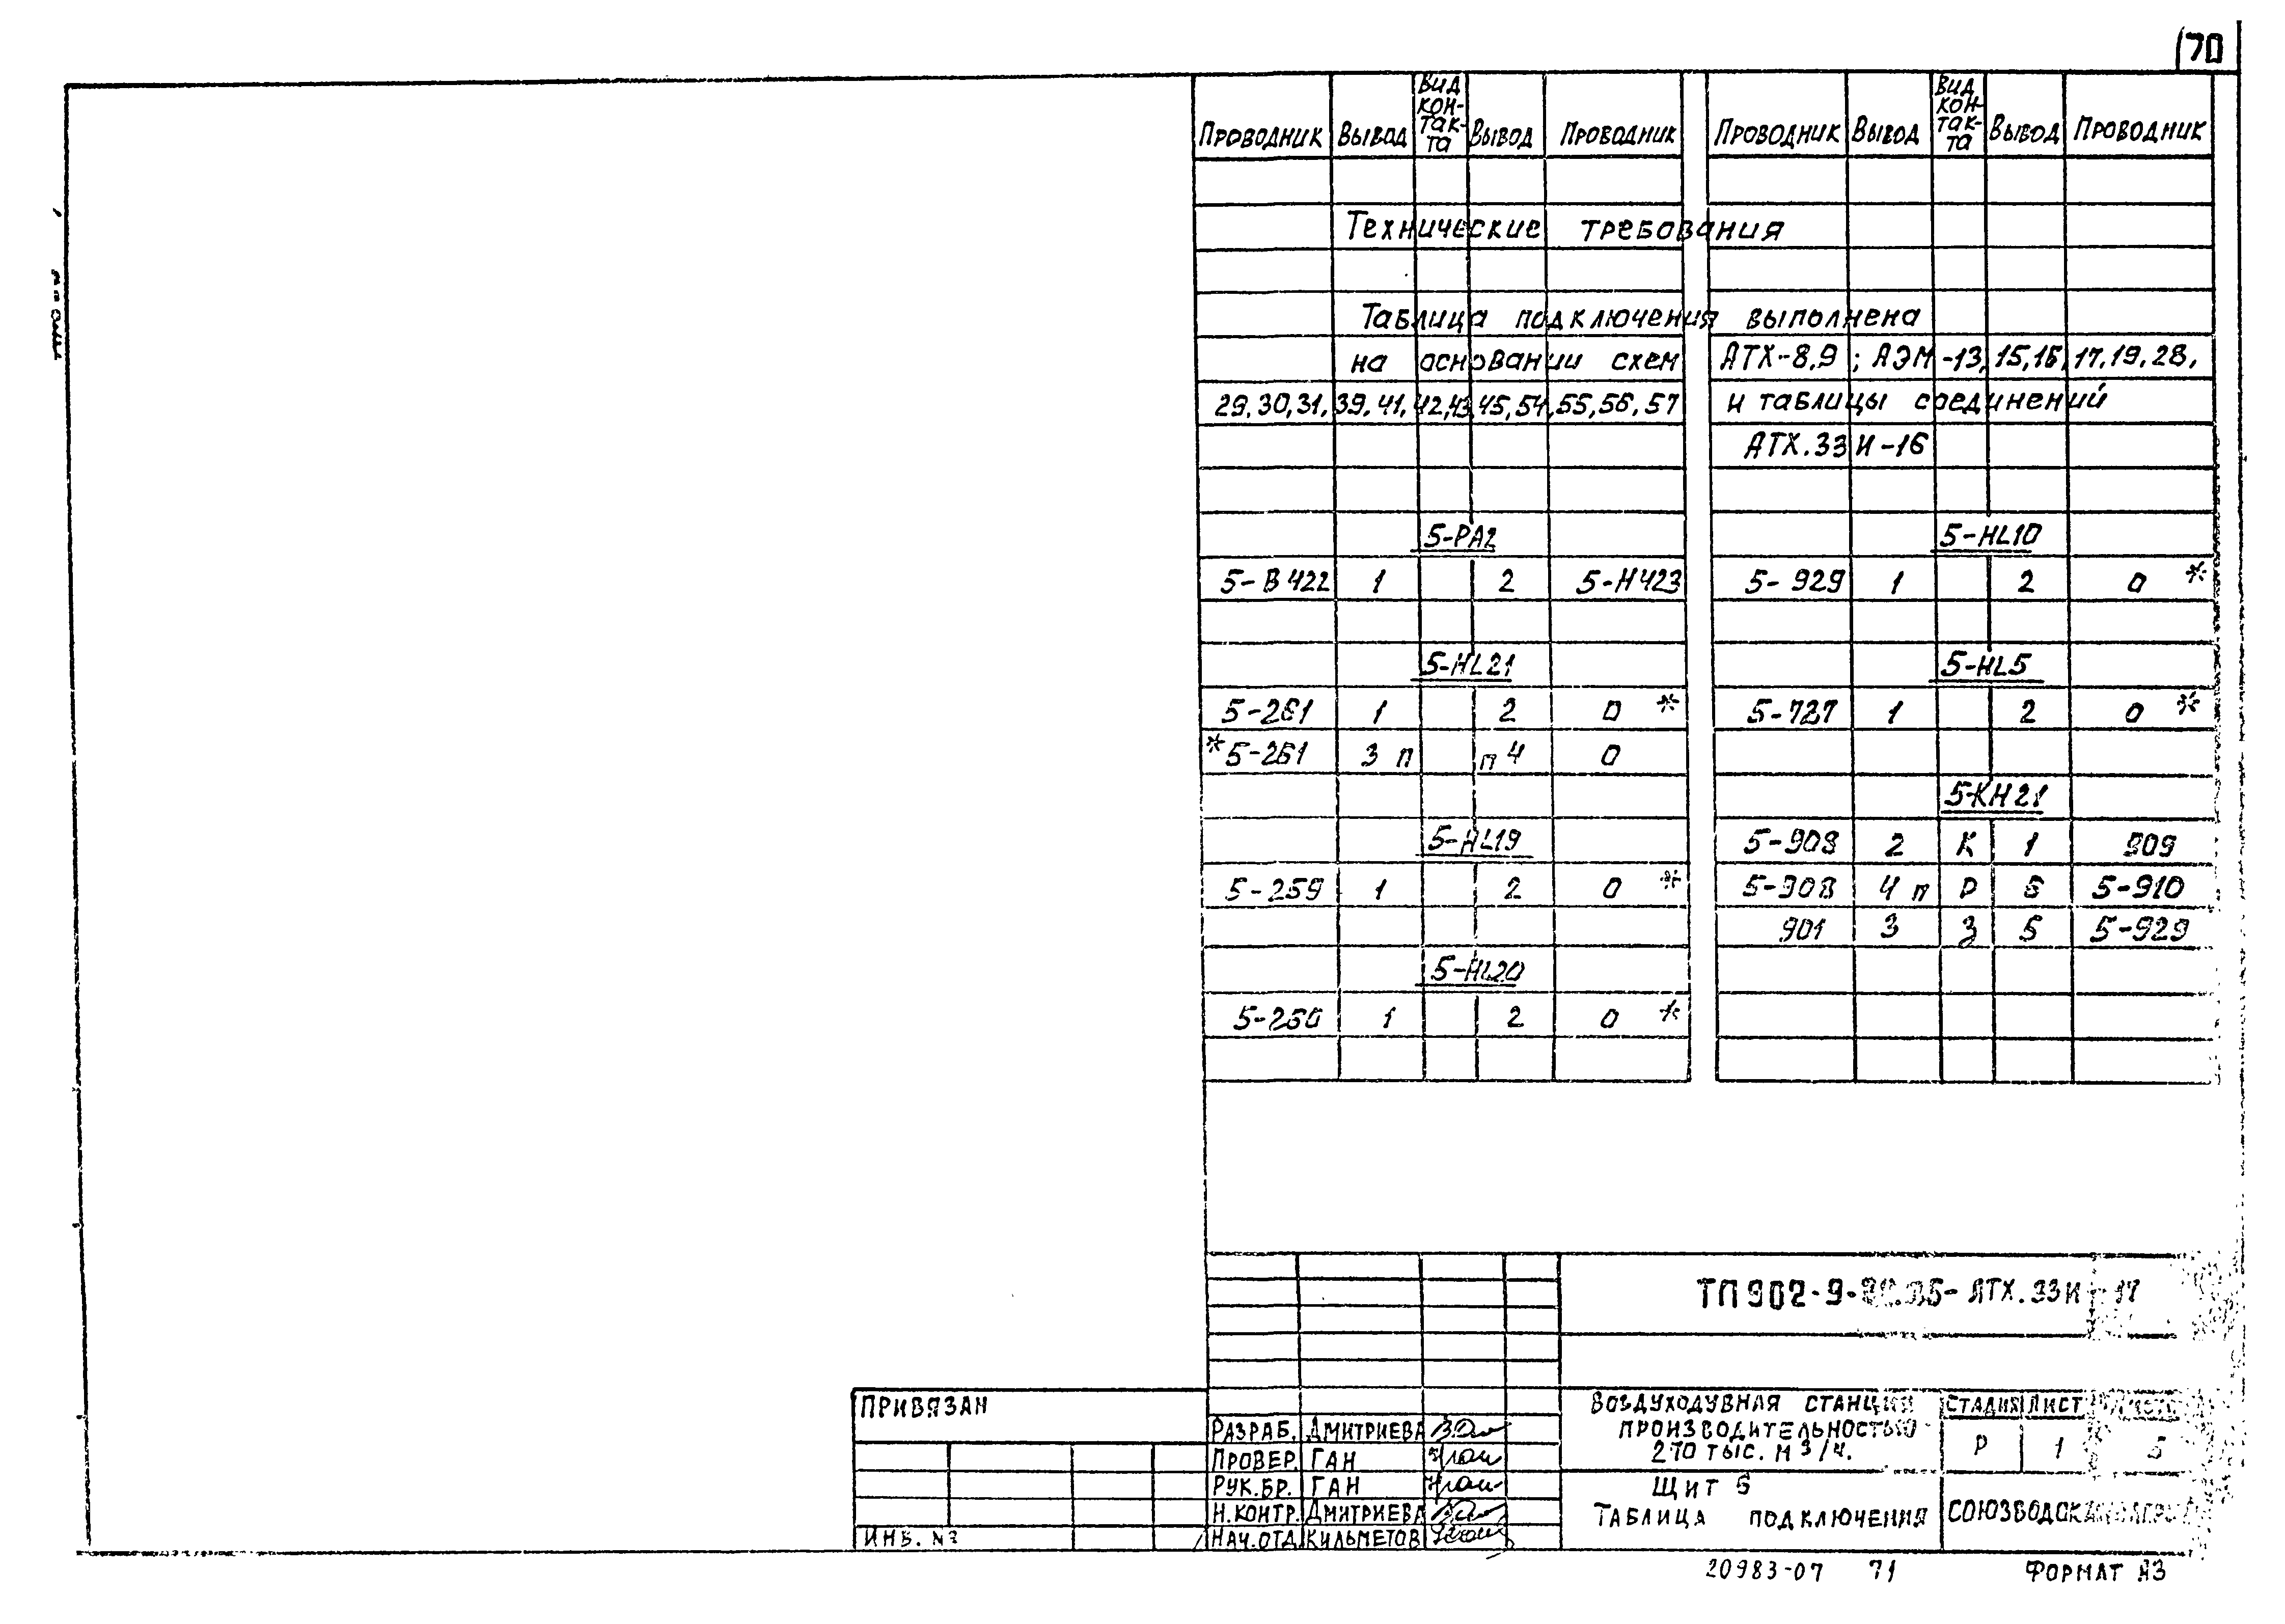 70
Проводник Вывод Вид кон-так-та Вывод Проводник Проводник Вывод Вид кон-так-та Вывод Проводник
Технические требования
Таблица подключения выполнена
на основании схем АТХ-8,9; АЭМ-13,15,16,17,19,28,
29,30,31,39,41,42,43,45,54,55,56,57 и таблицы соединений
АТХ.33И-16
5-РА2 5-HL10
5-В422 1 2 5-Н423 5-929 1 2 0 *
5-HL21 5-HL5
5-261 1 2 0 * 5-727 1 2 0 *
*5-261 3 п п 4 0
5-КН21
5-HL19 5-908 2 К 1 909
5-259 1 2 0 * 5-908 4 п Р 6 5-910
901 3 З 5 5-929
5-HL20
5-260 1 2 0 *
ТП902-9- АТХ.33И-17
ПРИВЯЗАН
ВОЗДУХОДУВНАЯ СТАНЦИЯ СТАДИЯ ЛИСТ
РАЗРАБ. ДМИТРИЕВА ПРОИЗВОДИТЕЛЬНОСТЬЮ
ПРОВЕР. ГАН 270 ТЫС. М3/Ч. Р 1 5
РУК.БР. ГАН ЩИТ 5
Н.КОНТР. ДМИТРИЕВА ТАБЛИЦА ПОДКЛЮЧЕНИЯ
ИНВ. № НАЧ.ОТД КИЛЬМЕТОВ
20983-07 71 ФОРМАТ А3